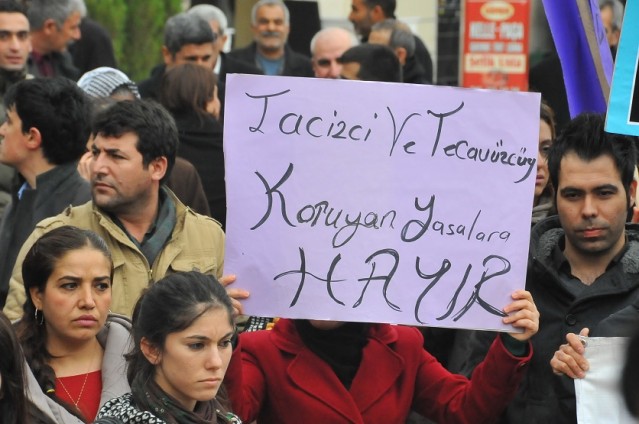 Tacizci Ve Tecavüzcüyü
Koruyan Yasalara
HAYIR